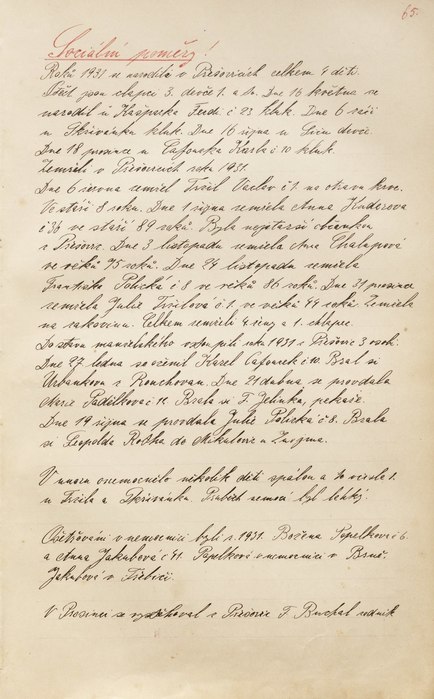 65.
Sociální poměry!
Roku 1931 se narodilo v Přešovicích celkem 4 děti.
jsou chlapci 3. děvče 1. a to. Dne 16 května se
narodil u Kašpárka Ferd. č 23 kluk. Dne 6 září
u Skřivánka kluk. Dne 16 října u děvče.
Dne 18 prosince u Cafourka Karla č 10 kluk.
Zemřeli v Přešovicích roku 1931.
Dne 6 června zemřel Václav č 1. na otravu krve.
Ve stáří 8 roku. Dne 1 října zemřela Anna Kuderova
č 36 ve stáří 89 roků. Byla nejstarší občanka
z Přešovic. Dne 3 listopadu zemřela Ana Chalupová
ve věku 75 roků. Dne 24 listopadu zemřela
Františka Polická č 8 ve věku 86 roků. Dne 31 prosince
zemřela Julie č 1. ve věku 44 roků. Zemřela
na rakovinu. Celkem zemřeli 4 ženy a 1. chlapec.
Do stavu manželského vstoupili roku 1931 z Přešovic 3 osoby.
Dne 27 ledna se oženil Karel Cafourek č 10. Bral si
Urbankovu z Ronchovan. Dne 21 dubna se provdala
Marie Padělková č 11. Brala si F. Jelínka, pekaře.
Dne 19 října se provdala Julie Polická č 8. Brala
si Leopolda do Mikulovic u Znojma.
V únoru onemocnělo několik dětí spálou a to v čísle 1.
u a Skřivánka. Průběh nemoci byl lehký.
Ošetřováni v nemocnici byli r. 1931. Božena Popelková č 6.
a Anna Jakubová č 41. Popelková v nemocnici v Brně.
Jakubová v Třebíči.
V Prosinci se vystěhoval z Přešovic F. Buchal rolník